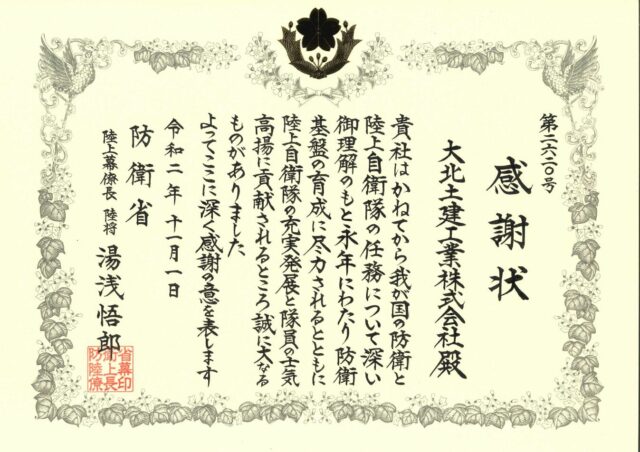 感謝状
第二六二〇号
大北土建工業株式会社殿
貴社はかねてから我が国の防衛と
陸上自衛隊の任務について深い
御理解のもと永年にわたり防衛
基盤の育成に尽力されるとともに
陸上自衛隊の充実発展と隊員の士気
高揚に貢献されるところ誠に大なる
ものがありました
よってここに深く感謝の意を表します
令和二年十一月一日
防衛省
陸上幕僚長 陸将 湯浅悟郎
省幕印
衛上長
防陸僚